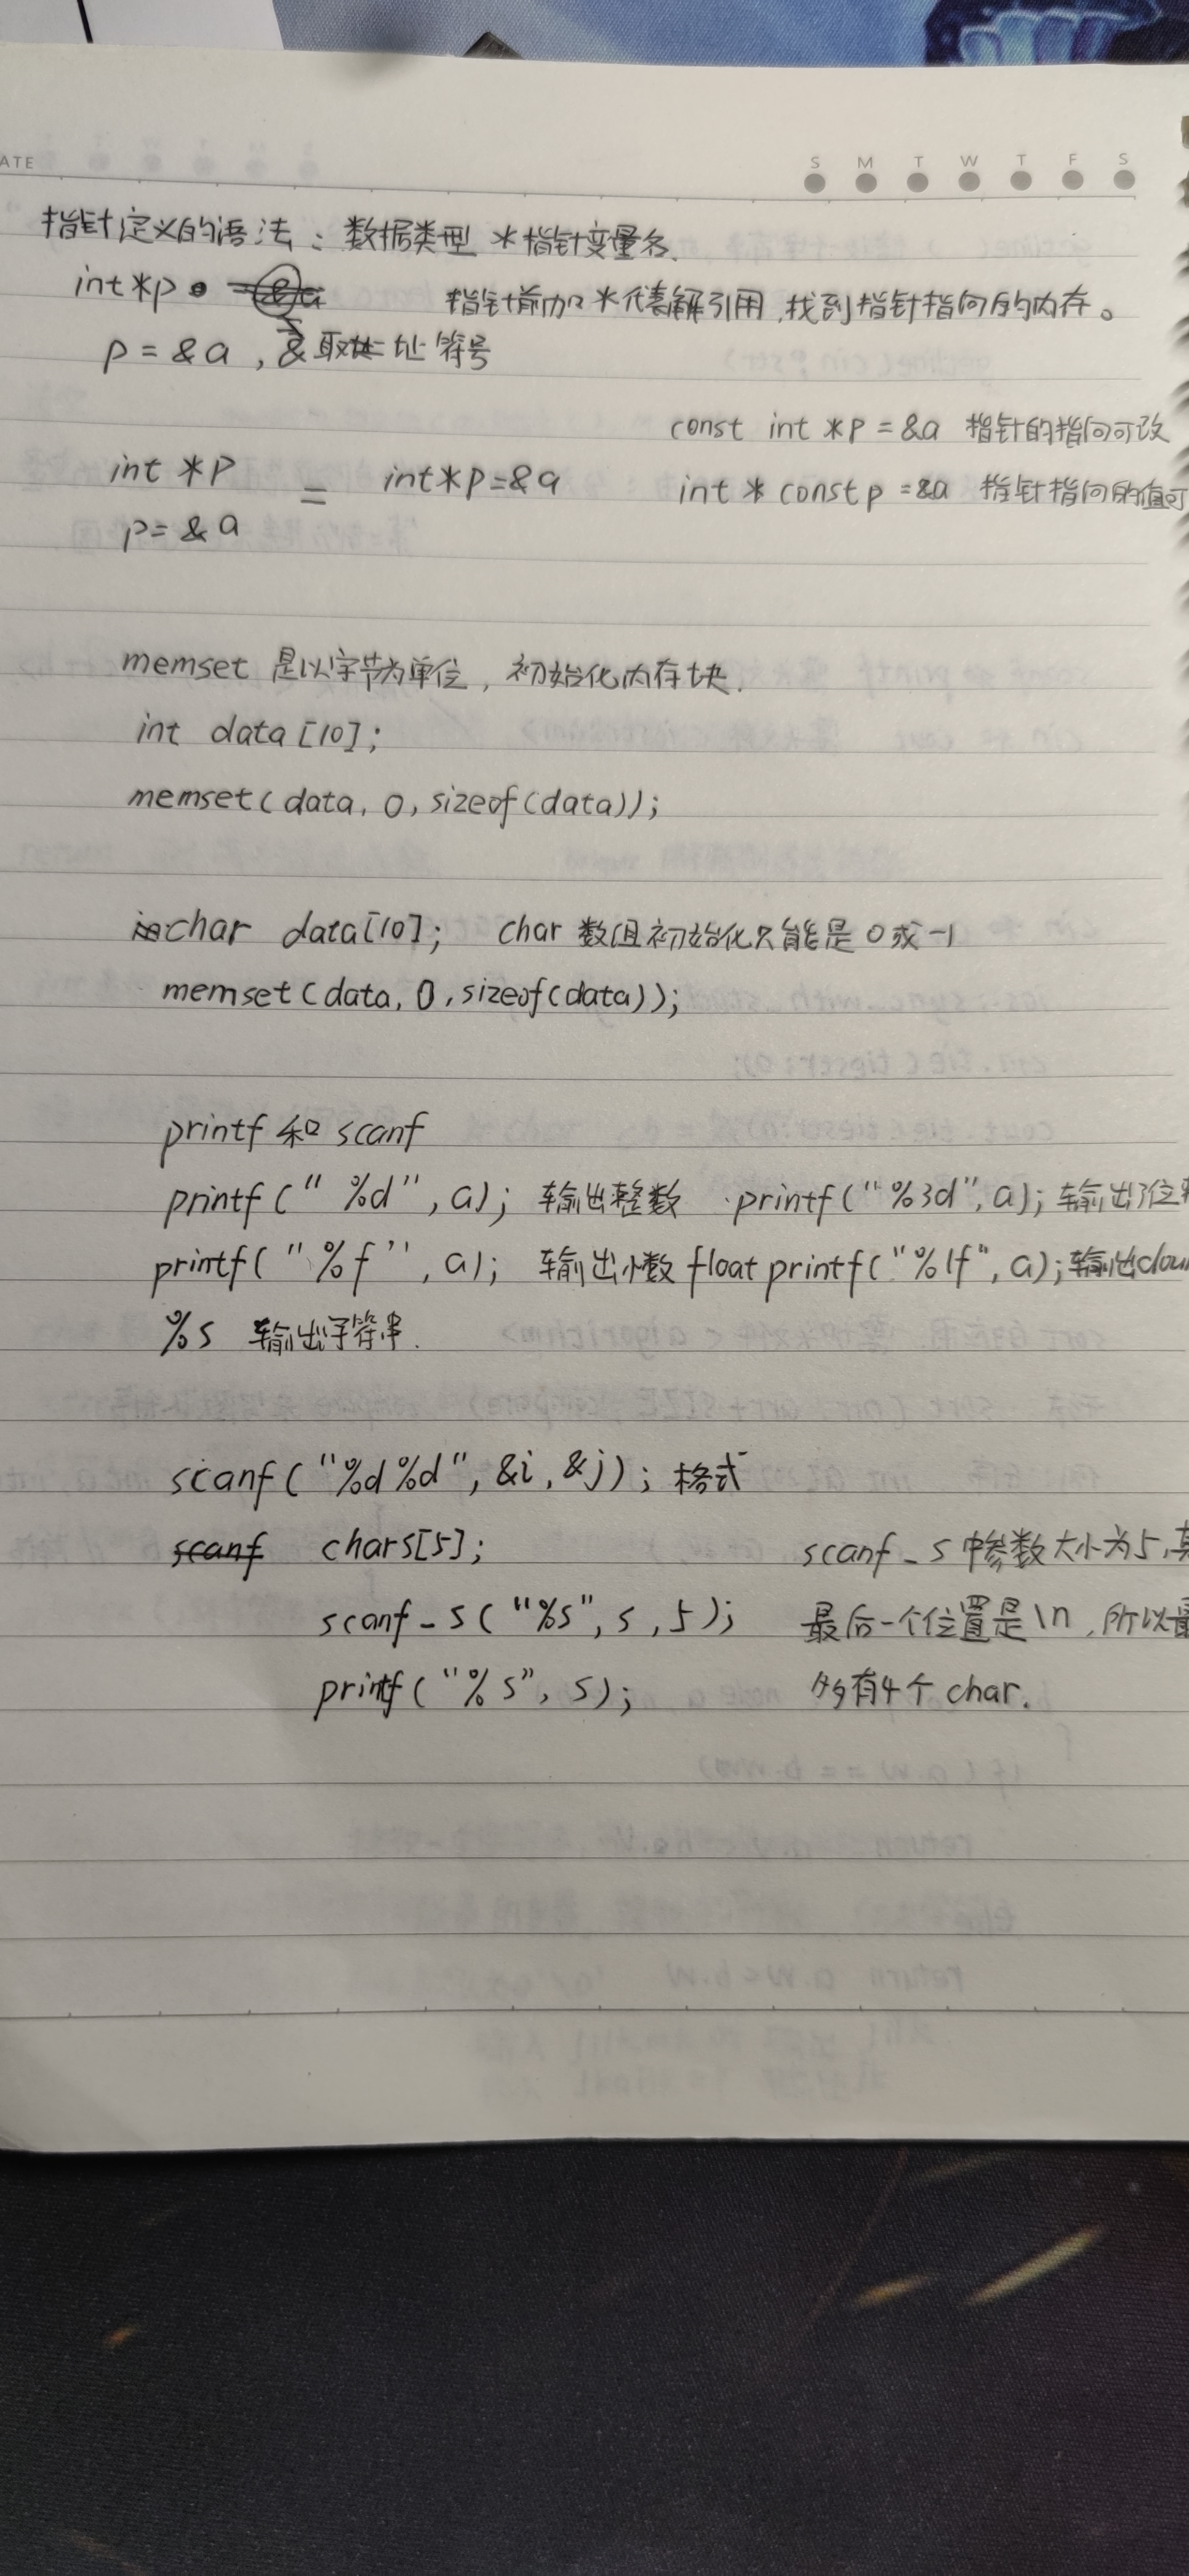 ATE
S M T W T F S
指针定义的语法：数据类型 *指针变量名.
int*p
指针前加*代表解引用,找到指针指向的内存。
p = &a , & 取地址符号
const int *p = &a 指针的指向可改
int *p = int*p=&a int * const p = &a 指针指向的值可
p= &a
memset 是以字节为单位, 初始化内存块.
int data [10];
memset(data, 0, sizeof(data));
char data[10]; char 数组初始化只能是0或-1
memset(data, 0, sizeof(data));
printf 和 scanf
printf(" %d", a); 输出整数 printf("%3d", a); 输出3位
printf("%f", a); 输出小数 float printf("%lf", a);输出dou
%s 输出字符串.
scanf("%d%d", &i, &j); 格式
scanf char s[5]; scanf_s 中参数大小为5,其
scanf_s("%s", s, 5); 最后一个位置是\n,所以最
printf("%s", s); 多有4个 char.